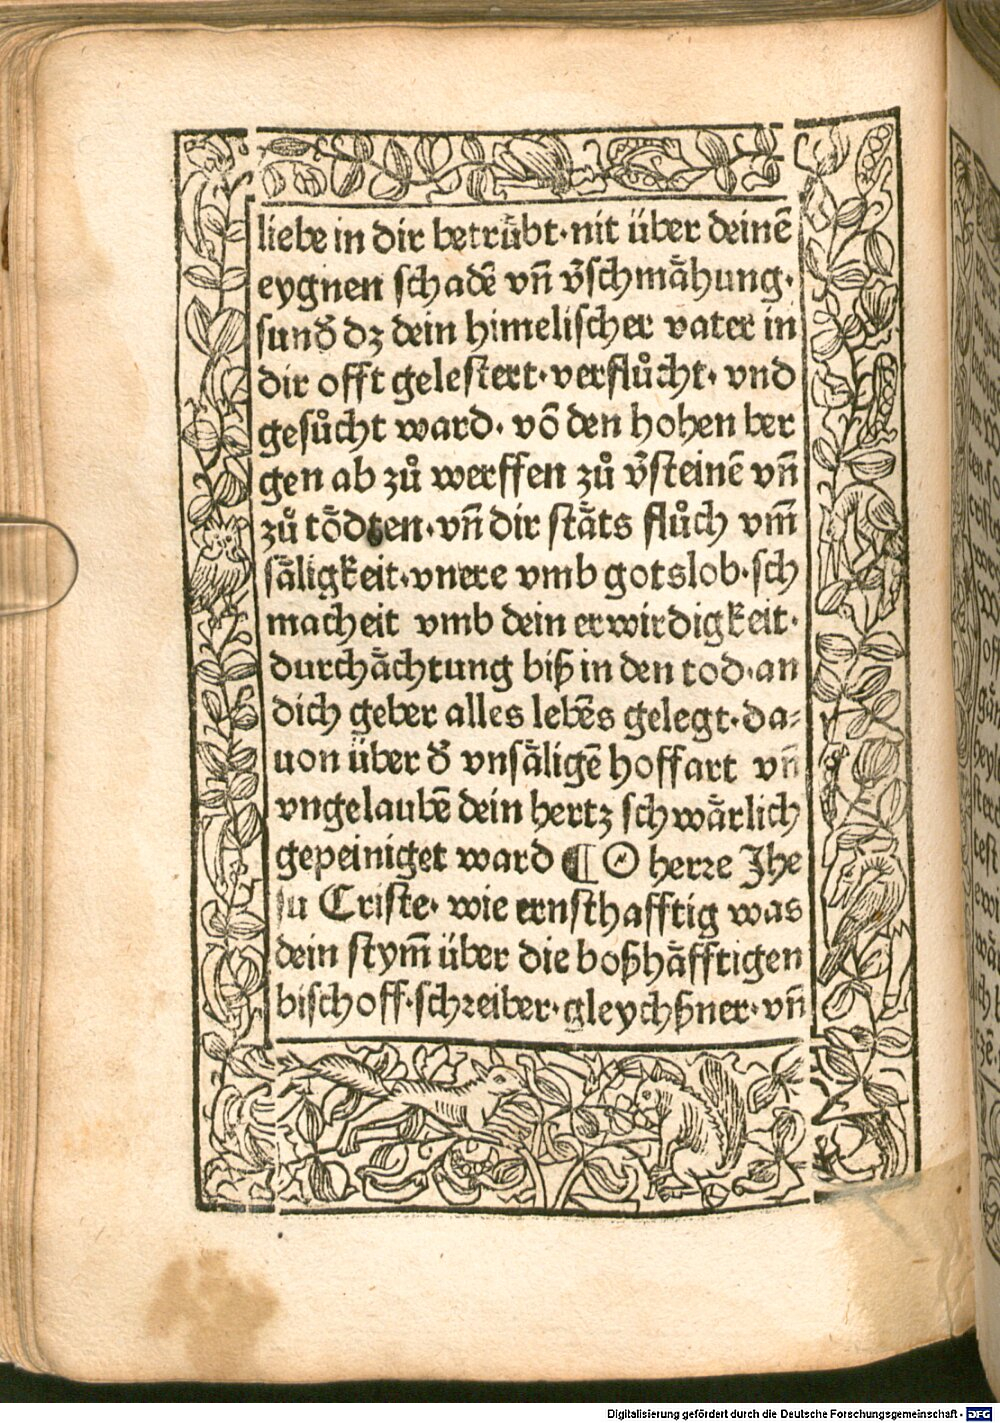 liebe in dir betruͤbt·nit über deinē
eygnen schadē vñ v̄schmaͤhung·
sund̄ dz dein himelischer vater in
dir offt gelestert·verfluͦcht·vnd
gesuͦcht ward·vō den hohen ber
gen ab zuͦ werffen zuͦ v̄steinē vñ
zuͦ toͤdten·vñ dir staͤts fluͦch vm̄
saͤligkeit·vnere vmb gotslob·sch
macheit vmb dein erwirdigkeit·
durchaͤchtung biß in den tod·an
dich geber alles lebēs gelegt·da⸗
uon über d̄ vnsaͤligē hoffart vñ
vngelaubē dein hertz schwaͤrlich
gepeiniget ward ¶ O herre Jhe
su Criste·wie ernsthafftig was
dein stym̄ über die boßhaͤfftigen
bischoff·schreiber·gleychßner·vñ
Digitalisierung gefördert durch die Deutsche Forschungsgemeinschaft - DFG